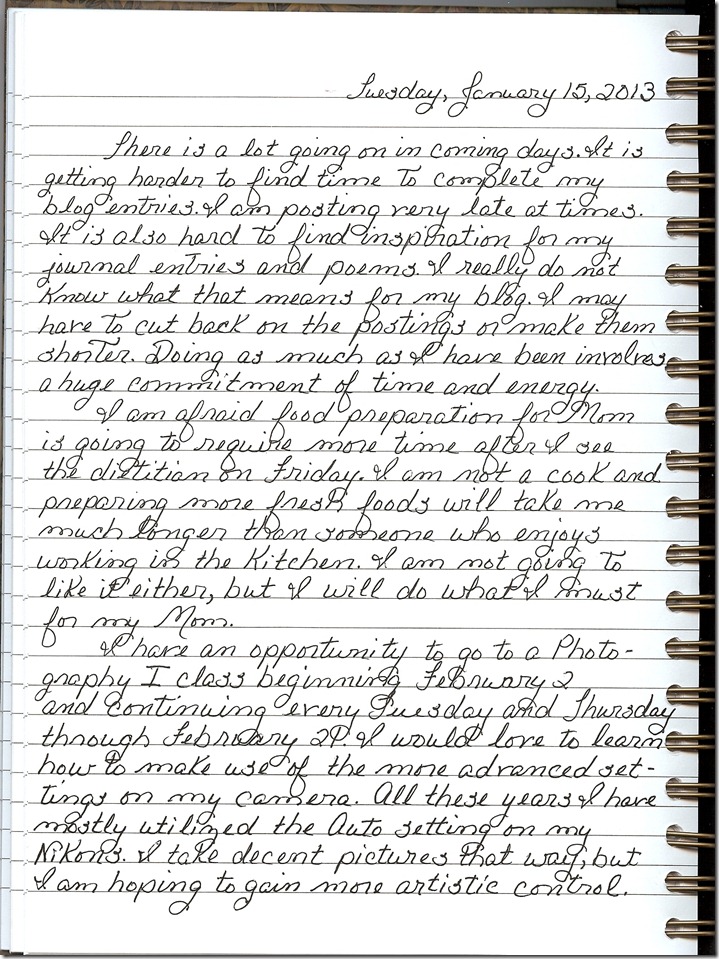 Tuesday, January 15, 2013
There is a lot going on in coming days. It is
getting harder to find time to complete my
blog entries. I am posting very late at times.
It is also hard to find inspiration for my
journal entries and poems. I really do not
know what that means for my blog. I may
have to cut back on the postings or make them
shorter. Doing as much as I have been involves
a huge commitment of time and energy.
I am afraid food preparation for Mom
is going to require more time after I see
the dietitian on Friday. I am not a cook and
preparing more fresh foods will take me
much longer than someone who enjoys
working in the kitchen. I am not going to
like it either, but I will do what I must
for my Mom.
I have an opportunity to go to a Photo-
graphy I class beginning February 2
and continuing every Tuesday and Thursday
through February. I would love to learn
how to make use of the more advanced set-
tings on my camera. All these years I have
mostly utilized the Auto setting on my
Nikons. I take decent pictures that way, but
I am hoping to gain more artistic control.